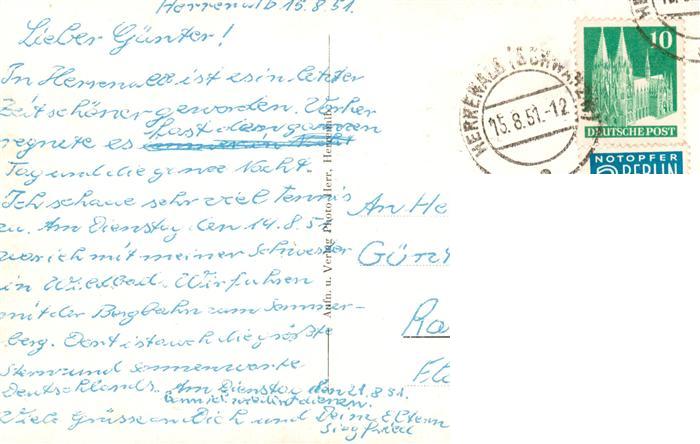 Herrenalb 15.8.51.
Lieber Günter!
In Herrenalb ist es in letzter
Zeit schöner geworden. Vorher
regnete es fast den ganzen
Tag und die ganze Nacht.
Ich schaue sehr viel Tennis
zu. Am Dienstag den 14.8.51
war ich mit meiner Schwester
in Wildbad. Wir fuhren
mit der Bergbahn zum Sommer-
berg. Dort ist auch die größte
Stern und Sonnenwarte
Deutschlands. Am Dienstag den 21.8.51.
Viele Grüsse an Dich und Deine Eltern
Siegfried
Aufn. u. Verlag Photo-Herr, Herrenalb
An He
Günt
HERRENALB (SCHWARZW
15.8.51.-12
10
DEUTSCHE POST
NOTOPFER
2 BERLIN